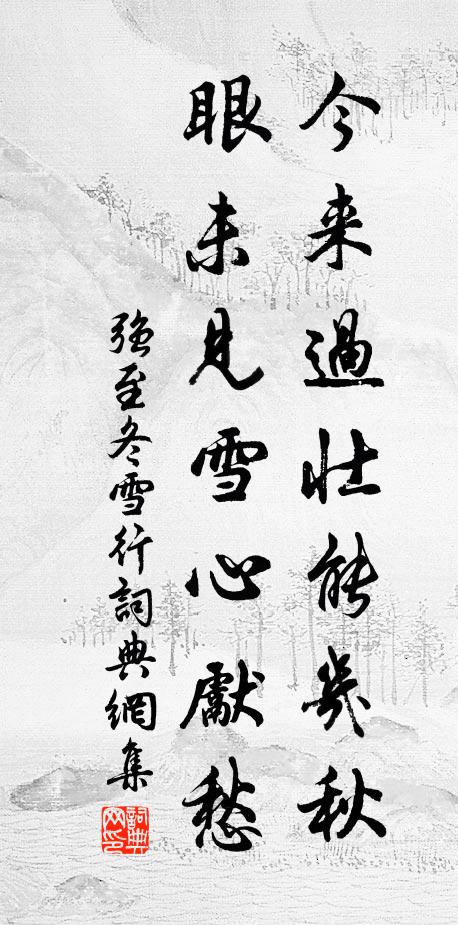 今来過壯能幾秋
眼未見雪心獻愁
強至冬雪行詞典網集
詞典网印